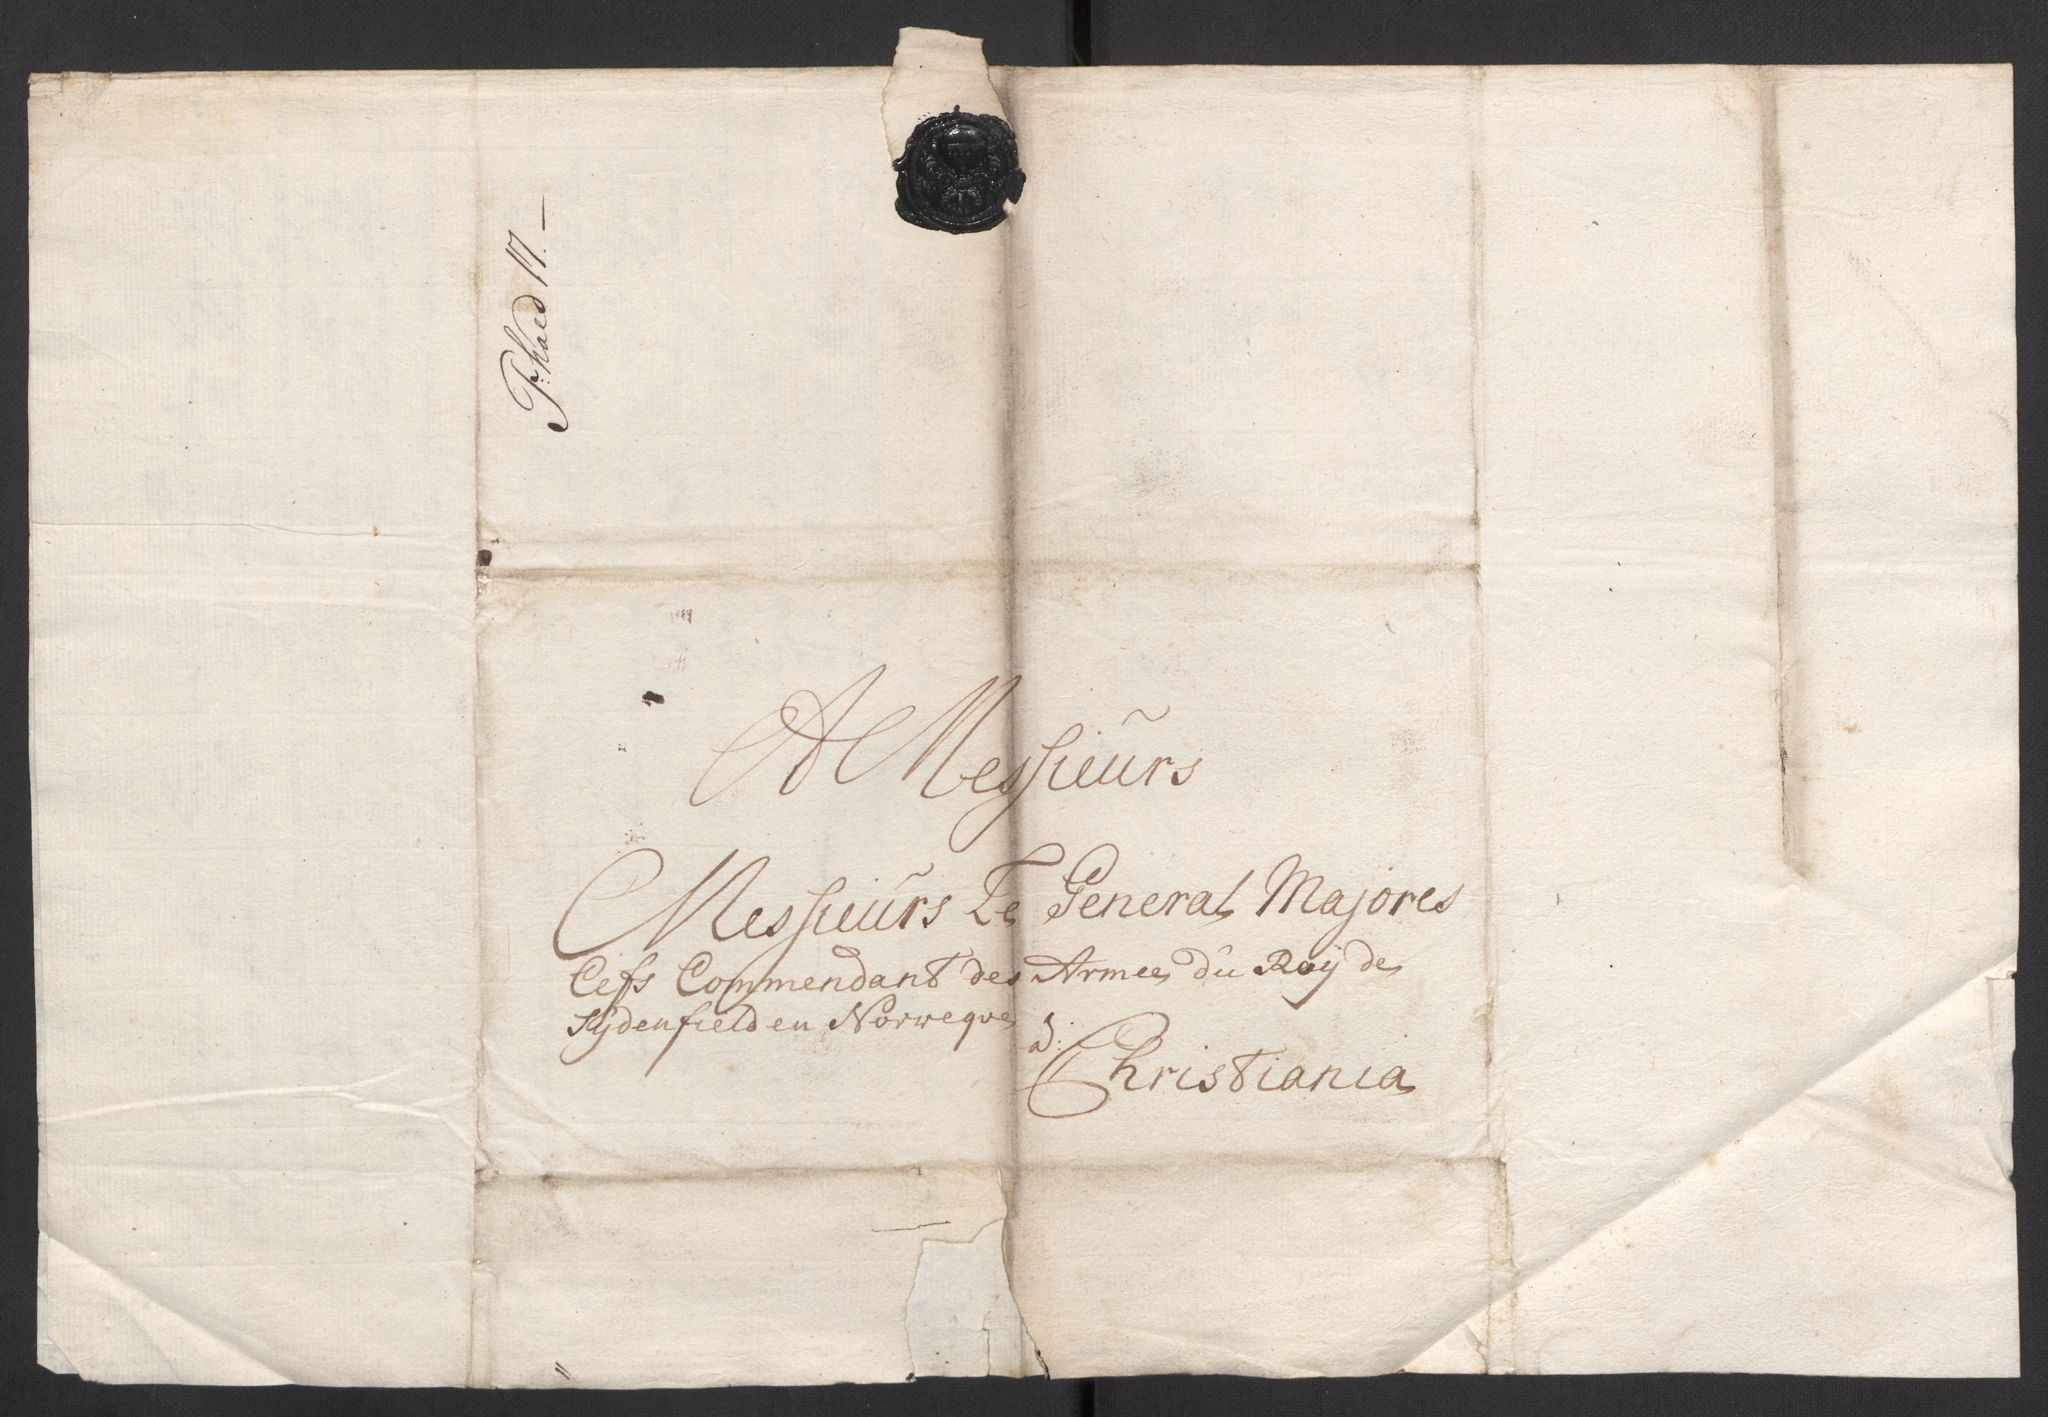 A Messieürs
Messieürs Le General Majores
Cefs Commendant des Armee dü Roy de
Sydenfield en Norweque
a:
Christiania